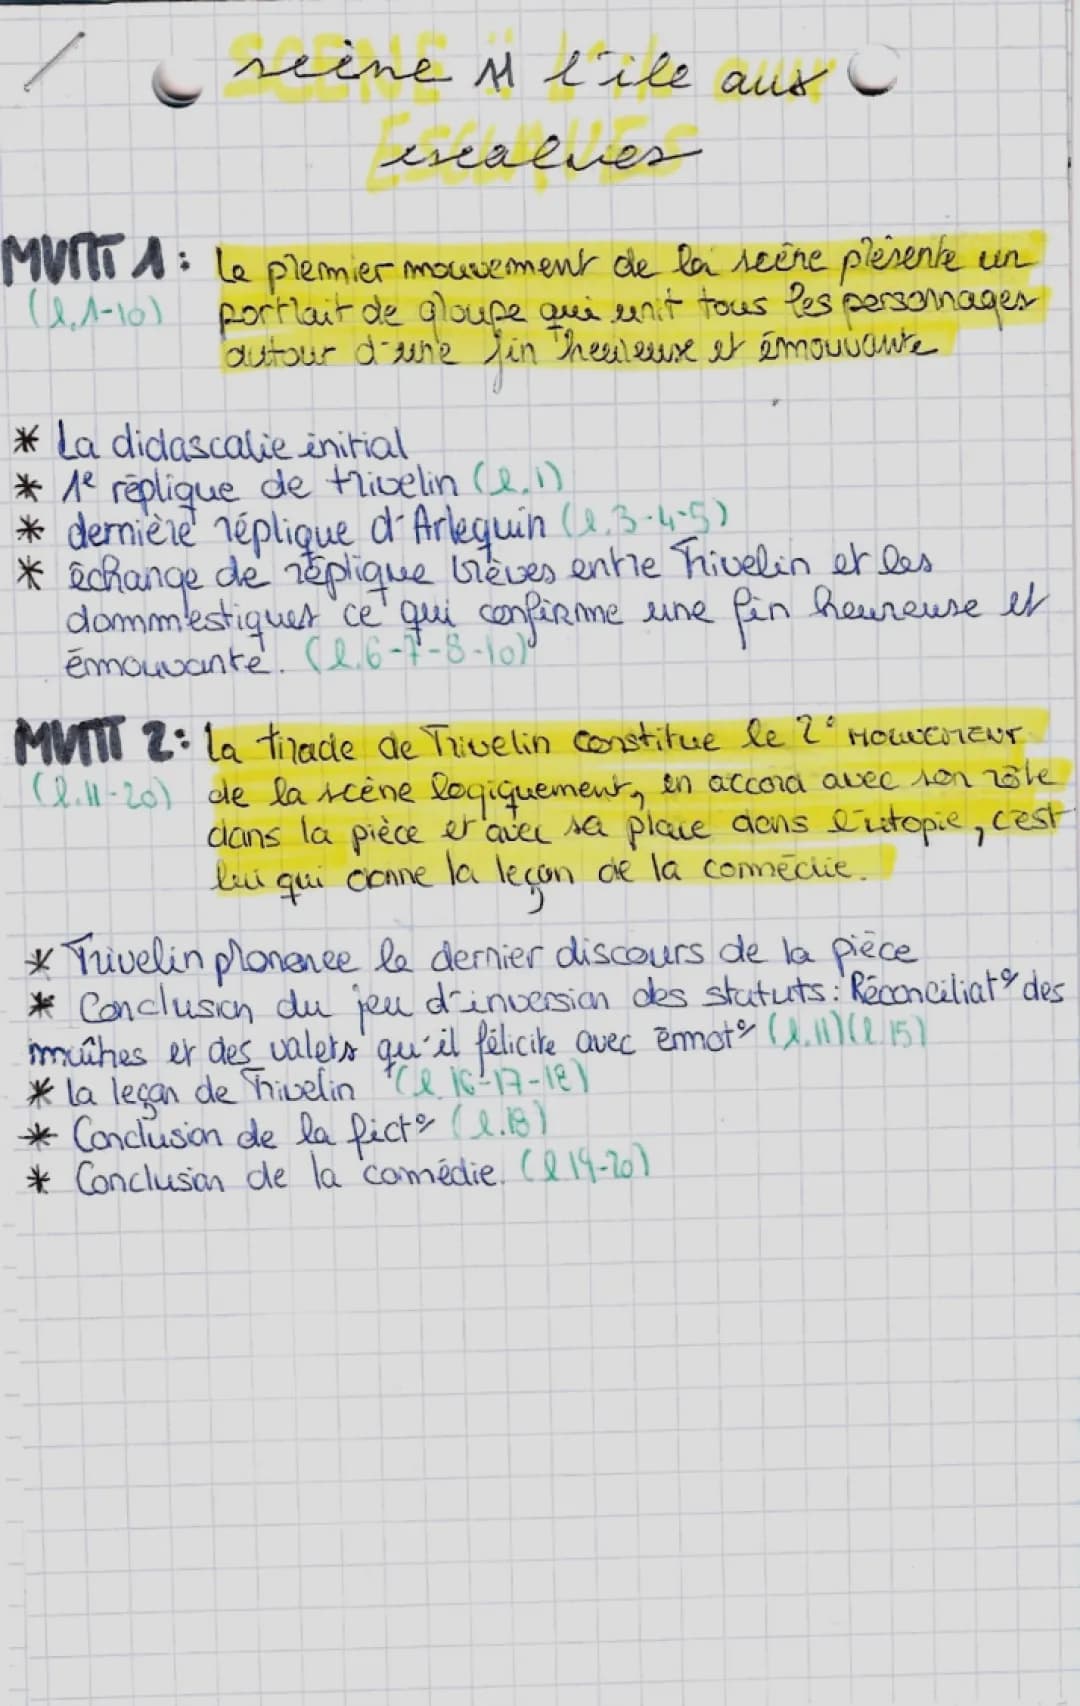 scène 11 l'ile aus
escalves
MVMT 1: Le premier mouvement de la scène présente un
(l.1-10) portrait de groupe qui unit tous les personnages
autour d'une fin heureuse et émouvante
* La didascalie initial
* 1e réplique de trivelin (l.1)
* dernière réplique d'Arlequin (l.3-4-5)
* échange de réplique brèves entre Trivelin et les
dommestiques ce qui confirme une fin heureuse et
émouvante. (l.6-7-8-10)
MVMT 2: La tirade de Trivelin constitue le 2° MOUVEMENT
(l.11-20) de la scène logiquement, en accord avec son rôle
dans la pièce et avec sa place dans l'utopie, c'est
lui qui donne la leçon de la comédie.
* Trivelin prononce le dernier discours de la pièce
* Conclusion du jeu d'inversion des statuts: Réconciliat° des
maîtres et des valets qu'il félicite avec émot° (l.11)(l.15)
* la leçon de Trivelin (l.16-17-18)
* Conclusion de la fict° (l.18)
* Conclusion de la comédie. (l.19-20)